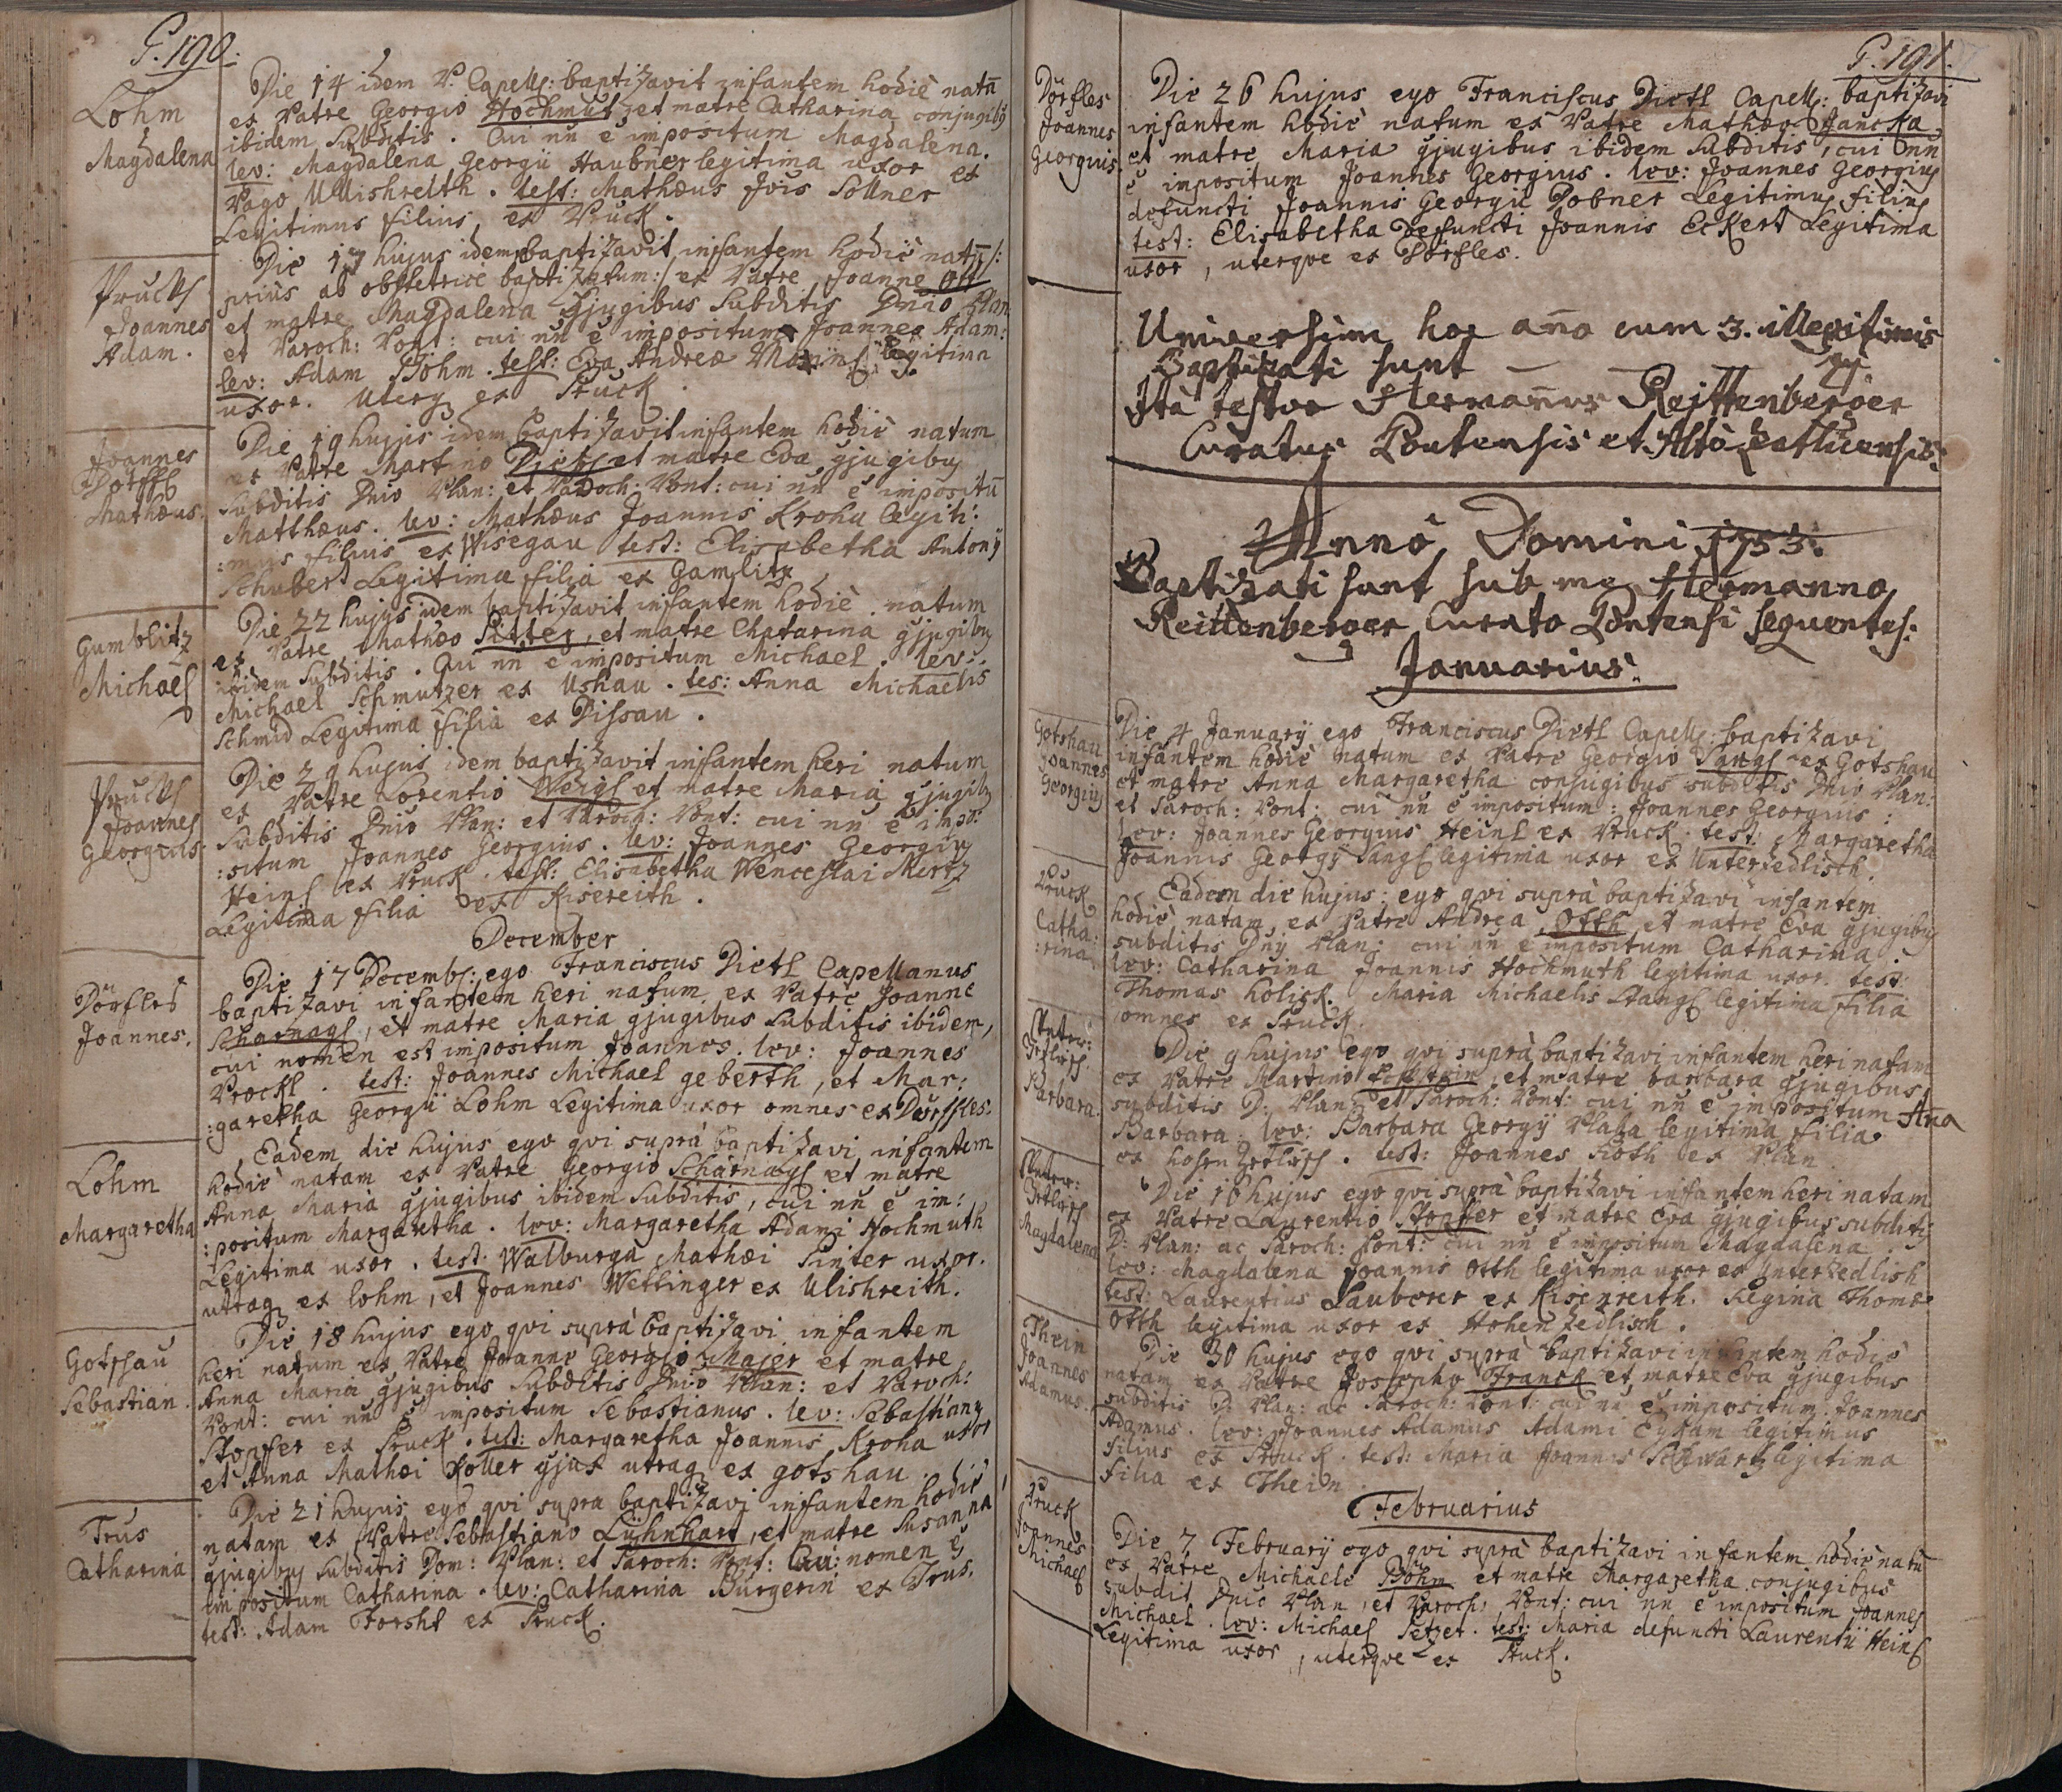 P. 190.
Lohm
Magdalena
Die 14 idem P. Capell: baptizavit infantem hodiè natã
ex Patre Georgio Hochmut, et matre Catharina conjugibꝰ
ibidem Subditis. Cui nn̄ ē impositum Magdalena.
lev: Magdalena Georgii Haubner legitima uxor ex
Pago Ullishreith. test: Mathæus Jois Sollner
Legitimus filius ex Pruck.
Prucks
Joannes
Adam.
Die 17 hujus idem baptizavit infantem hodiè natū /:
priùs ab obstetrice baptizatum:/ ex Patre Joanne Ott
et matre Magdalena gjugibus Subditis Dnio Plan:
et Paroch: Pont: cui nn̄ ē impositum Joannes Adam:
lev: Adam Böhm. test: Eva Andreæ legitima
uxor. Uterq ex Pruck.
Joannes
Dörffl
Mathæus.
Die 19 hujus idem baptizavit infantem hodiè natum
ex Patre Martino Dietl et matre Eva gjugibꝰ
Subditis Dnio Plan: et Paroch: Pont: cui nn̄ ē impositū
Matthæus. lev: Mathæus Joannis Krohu legiti:
:mus filius ex Wisegau test: Elisabetha Antonÿ
Schubert Legitima filia ex Gamlitz
Gumblitz
Michael
Die 22 hujus idem baptizavit infantem hodiè natum
ex Patre Mathæo Sitter, et matre Chatarina gjugibꝰ
ibidem Subditis. Cui nn̄ ē impositum Michael. lev:
Michael Schmutzer ex Ushau. tes: Anna Michaelis
Schmid Legitima filia ex Dissau.
Prucks
Joannes
Georgius
Die 29 hujus idem baptizavit infantem heri natum
ex Patre Lorentio Weigl et matre Maria gjugibꝰ
Subditis Dnio Plan: et Paroch: Pont: cui nn̄ ē impo:
:situm Joannes Georgius. lev: Joannes Georgiꝰ
Heinl ex Pruck. test: Elisabetha Wenceslai Mertz
Legitima filia ex Kisereith.
December
Dörfles
Joannes.
Die 17 Decembr: ego Franciscus Dietl Capellanus
baptizavi infantem heri natum ex Patre Joanne
Scharnagl, et matre Maria gjugibus Subditis ibidem,
cui nomen est impositum Joannes. lev: Joannes
Prockl. test: Joannes Michael geberth, et Mar:
:garetha Georgii Lohm Legitima uxor omnes ex Dörffles.
Lohm
Margaretha
Eadem die hujus ego qvi suprà baptizavi infantem
hodiè natam ex Patre Georgio Scharnagl et matre
Anna Maria gjugibus ibidem Subditis, cui nn̄ ē im:
:positum Margaretha. lev: Margaretha Adami Hochmuth
Legitima uxor. test: Walburga Mathæi Pinter uxor.
utraq ex lohm, et Joannes Wettinger ex Ulishreith.
Gotschau
Sebastian.
Die 18 hujus ego qvi suprà baptizavi infantem
heri natum ex Patre Joanne Georgio Majer et matre
Anna Maria gjugibus Subditis Dnio Plan: et Paroch:
Pont: cui nn̄ ē impositum Sebastianus. lev: Sebastianꝰ
Stopfer ex Pruck. test: Margaretha Joannis Kroha uxor
et Anna Mathæi Koller gjux utraq ex gotshau.
Trus
Catharina
Die 21 hujus ego qvi supra baptizavi infantem hodiè
natam ex Patre Sebastiano Lühnhart, et matre Susanna
gjugibꝰ Subditis Dom: Plan: et Paroch: Pont: Cui nomen ē
impositum Catharina. lev: Catharina Bürgerin ex Trus.
test: Adam Forsht ex Pruck.
P. 191.
Dörfles
Joannes
Georgius.
Die 26 hujus ego Franciscus Dietl Capell: baptizavi
infantem hodiè natum ex Patre Mathæo Hancka
et matre Maria gjugibus ibidem Subditis, cui nn̄
ē impositum Joannes Georgius. lev: Joannes Georgiꝰ
defuncti Joannis Georgii Dobner Legitimꝰ filiꝰ
test: Elisabetha Defuncti Joannis Eckert Legitima
uxor, uterque ex Dörfles.
Universim hoc año cum 3. illegitimis
Baptizati sunt
Ità testor Hermañus Reittenberger
Curatus Pontensis et Altò Zetlicensis:
Annô Domini 1753.
Baptizati sunt sub me Hermanno
Reittenberger Curato Pontensi sequentes:
Januarius:
Gotshau
Joannes
Georgiꝰ
Die 4 Januarÿ ego Franciscus Dietl Capell: baptizavi
infantem hodiè natum ex Patre Georgio Sangl ex Gotshau
et matre Anna Margaretha conjugibus subditis Dnio Plan:
et Paroch: Pont: cui nn̄ ē impositum: Joannes Georgius:
lev: Joannes Georgius Heinl ex Pruck. test: Margaretha
Joannis Georgÿ Sangl legitima uxor ex Unterzedlisch.
Pruck
Catha:
:rina
Eadem die hujus: ego qvi suprà baptizavi infantem
hodiè natam, ex Patre Andrea Otth et matre Eva gjugibꝰ
subditis Dnÿ Plan: cui nn̄ ē impositum Catharina.
lev: Catharina Joannis Hochmuth legitima uxor. test:
Thomas Holick. Maria Michaelis Stangl legitima filia
omnes ex Pruck.
Unter:
Zetlisch.
Barbara.
Die 9 hujus ego qvi suprà baptizavi infantem heri natam
ex Patre Martino Eckstein et matre barbara gjugibus
subditis D: Plan: et Paroch: Pont: cui nn̄ ē impositum Aña
Barbara. lev: Barbara Georgÿ Plaha legitima filia
ex hohen Zetlisch. test: Joannes Roth ex Plan.
Unter:
Zetlisch
Magdalena
Die 16 hujus ego qvi suprà baptizavi infantem heri natam
ex Patre Laurentio Stopfer et matre Eva gjugibus subditis
D: Plan: ac Paroch: Pont: cui nn̄ ē impositum Magdalena.
lev: Magdalena Joannis Otth legitima uxor ex Unterzedlish
test: Laurentius Lauberer ex Risenreith. Regina Thomæ
Otth legitima uxor ex Hohenzedlisch.
Thein
Joannes
Adamus.
Die 30 hujus ego qvi suprà baptizavi infantem hodiè
natam ex Patre Josepho Franck et matre Eva gjugibus
subditis D: Plan: ac Paroch: Pont: cui nn̄ ē impositum Joannes
Adamus. lev: Joannes Adamus Adami Cykam legitimus
filius ex Pruck. test: Maria Joannis Schwartz legitima
filia ex Thein.
Februarius
Pruck
Joannes
Michael
Die 7 Februarÿ ego qvi suprà baptizavi infantem hodiè natū
ex Patre Michaele Böhm et matre Margaretha conjugibus
subdit Dnio Plan, et Paroch: Pont: cui nn̄ ē impositum Joannes
Michael. lev: Michael Setzer. test: Maria defuncti Laurentii Heinl
Legitima uxor, uterque ex Pruck.